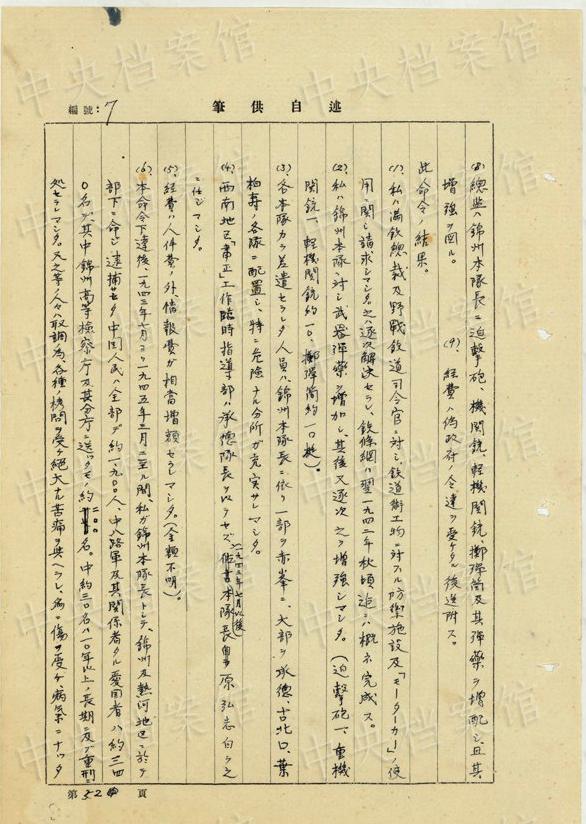 編號：7
述自供筆
(8) 總監ハ錦州本隊長ニ迫擊砲、機関銃、軽機関銃、擲弾筒及其弾藥ヲ増配シ、且其
増強ヲ図ル。
(9) 経費ハ偽政府ノ令達ヲ受ケタル後送附ス。
此命令ノ結果。
(1) 私ハ満鉄総裁及野戦鉄道司令官ニ対シ、鉄道衛工物ニ対スル防禦施設及「モーターカー」ノ使
用ニ関シ請求シマシタ。之逐次解決セラレ、鉄條網ハ翌一九四二年秋頃迄ニハ概ネ完成ス。
(2) 私ハ錦州本隊ニ対シ武器弾藥ヲ増加シ、其後又逐次之ヲ増強シマシタ。(迫擊砲一、重機
関銃一、軽機関銃約一〇、擲弾筒約一〇)
(3) 各本隊カラ差遣セラレタ人員ハ、錦州本隊長ニ依リ一部ヲ赤峯ニ、大部ヲ承德、古北口、葉
柏寿ノ各隊ニ配置シ、特ニ危險ナル分所ガ充実サレマシタ。
(4) 西南地区「粛正」工作臨時指導部ハ承德隊長ヲ以テセズ、本隊長原弘志自ラ之
(一九四二年七月以後)
ニ任ジマシタ。
(5) 経費ハ人件費ノ外、情報費ガ相當増額セラレマシタ。(金額不明)。
(6) 本命令下達後、一九四二年七月ヨリ一九四五年三月ニ至ル間、私ガ錦州本隊長トシテ、錦州及熱河地区ニ於テ
部下ニ命ジ逮捕サセタ中国人民ハ全部デ約一、九〇〇人、中八路軍及其関係者タル愛国者ハ約三四
〇名デ、其中錦州高等檢察庁及其分庁ニ送ッタモノ約二〇〇名。中約三〇名ハ一〇年以上ノ長期ニ及ブ重刑ニ
処セラレマシタ。又之等ノ人々ハ取調ノ為、各種ノ拷問ヲ受ケ絕大ナル苦痛ヲ與ヘラレ、為ニ傷ヲ受ケ、病気ニナッタ
第52頁
中央档案馆